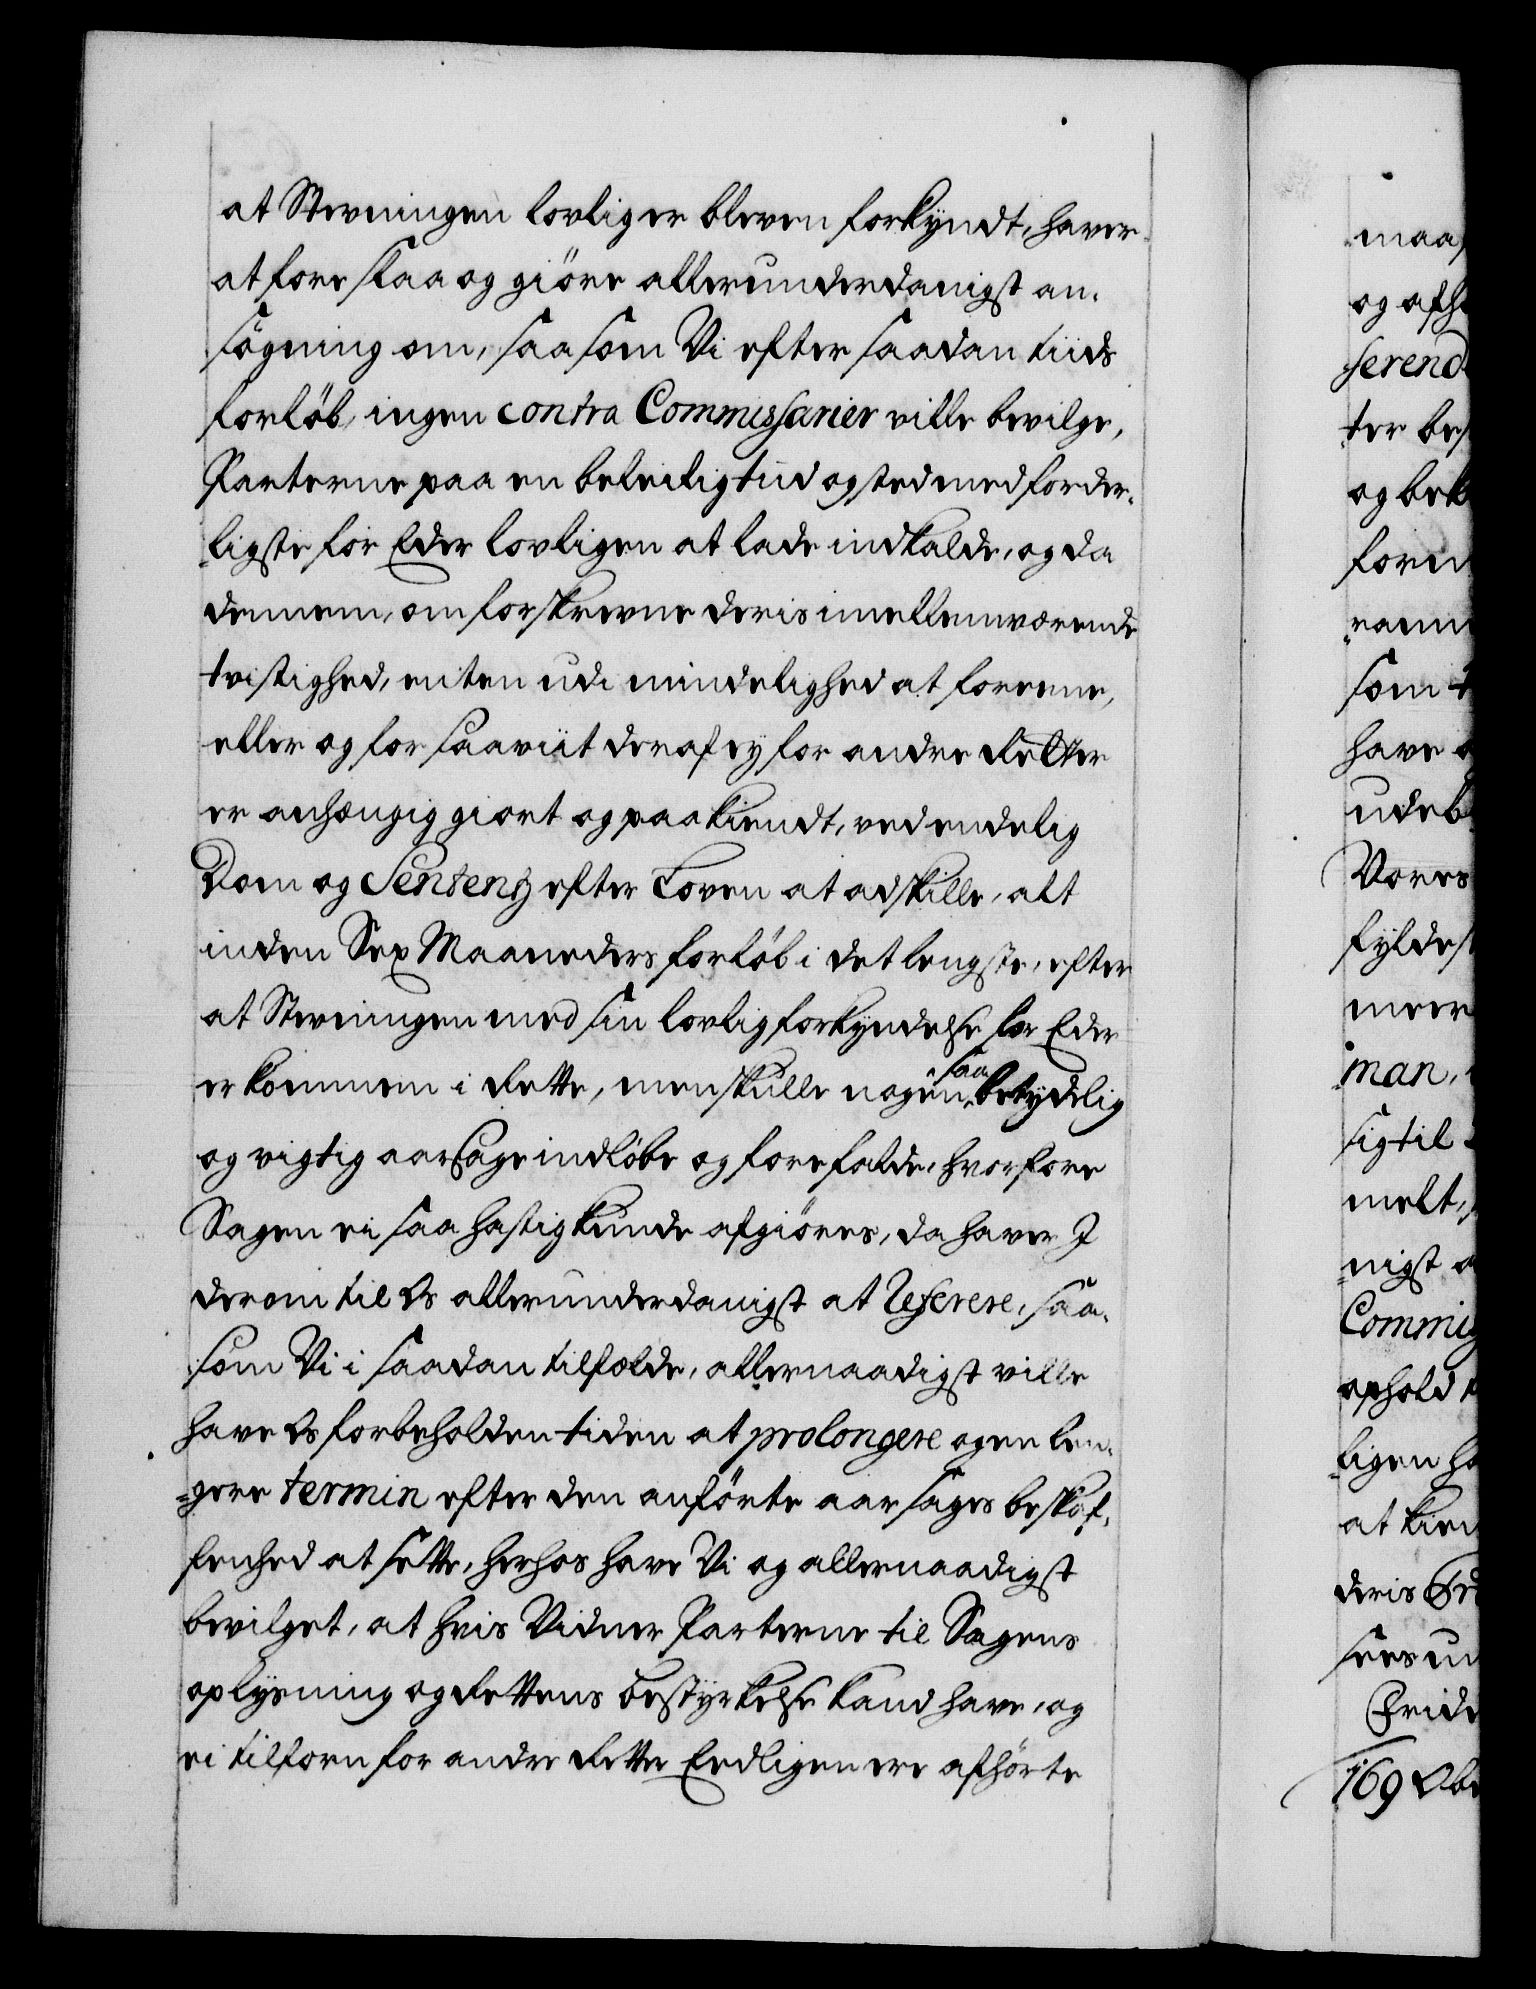 at Stevningen lovlig er bleven forkyndt, haver
at foreslaa og giöre allerunderdanigst an-
søgning om, saasom Vi efter saadan tiids
forløb, ingen contra Commissarier ville bevilge,
Parterne paa en beleilig tiid og sted med forder-
ligste for Eder lovligen at lade indkalde, og da
dennem, om forskrevne deris imellemværende
tvistighed, enten udi mindelighed at foreene,
eller og for saaviit deraf ey for andre Retter
er anhængig giort og paakiendt, ved endelig
Dom og Sententz efter Loven at adskille, alt
inden Sex Maaneders forløb i det lengste, efter
at Stevningen med sin lovlig forkyndelse for Eder
er kommen i Rette, men skulle nogen saa betydelig
og vigtig aarsage indløbe og forefalde, hvorfore
Sagen ei saa hastig kunde afgiöres, da haver I
derom til Os allerunderdanigst at Referere, saa-
som Vi i saadan tilfælde, allernaadigst ville
have Os forbeholden tiden at prolongere og en len-
gere termin efter den anförte aarsages beskaf-
fenhed at sette, herhos have Vi og allernaadigst
bevilget, at hvis Vidner Parterne til Sagens
oplysning og Rettens bestyrkelse kand have, og
ei tilforn for andre Rette Eedligen ere afhörte
maa
og afh
ferend
ter bes
og bek
foren
som t
have
udeb
Vores
fyldes
meer
man,
sig til
melt,
nigst
Commis
ophold
ligen ha
at kien
deris
sees un
Fride
169